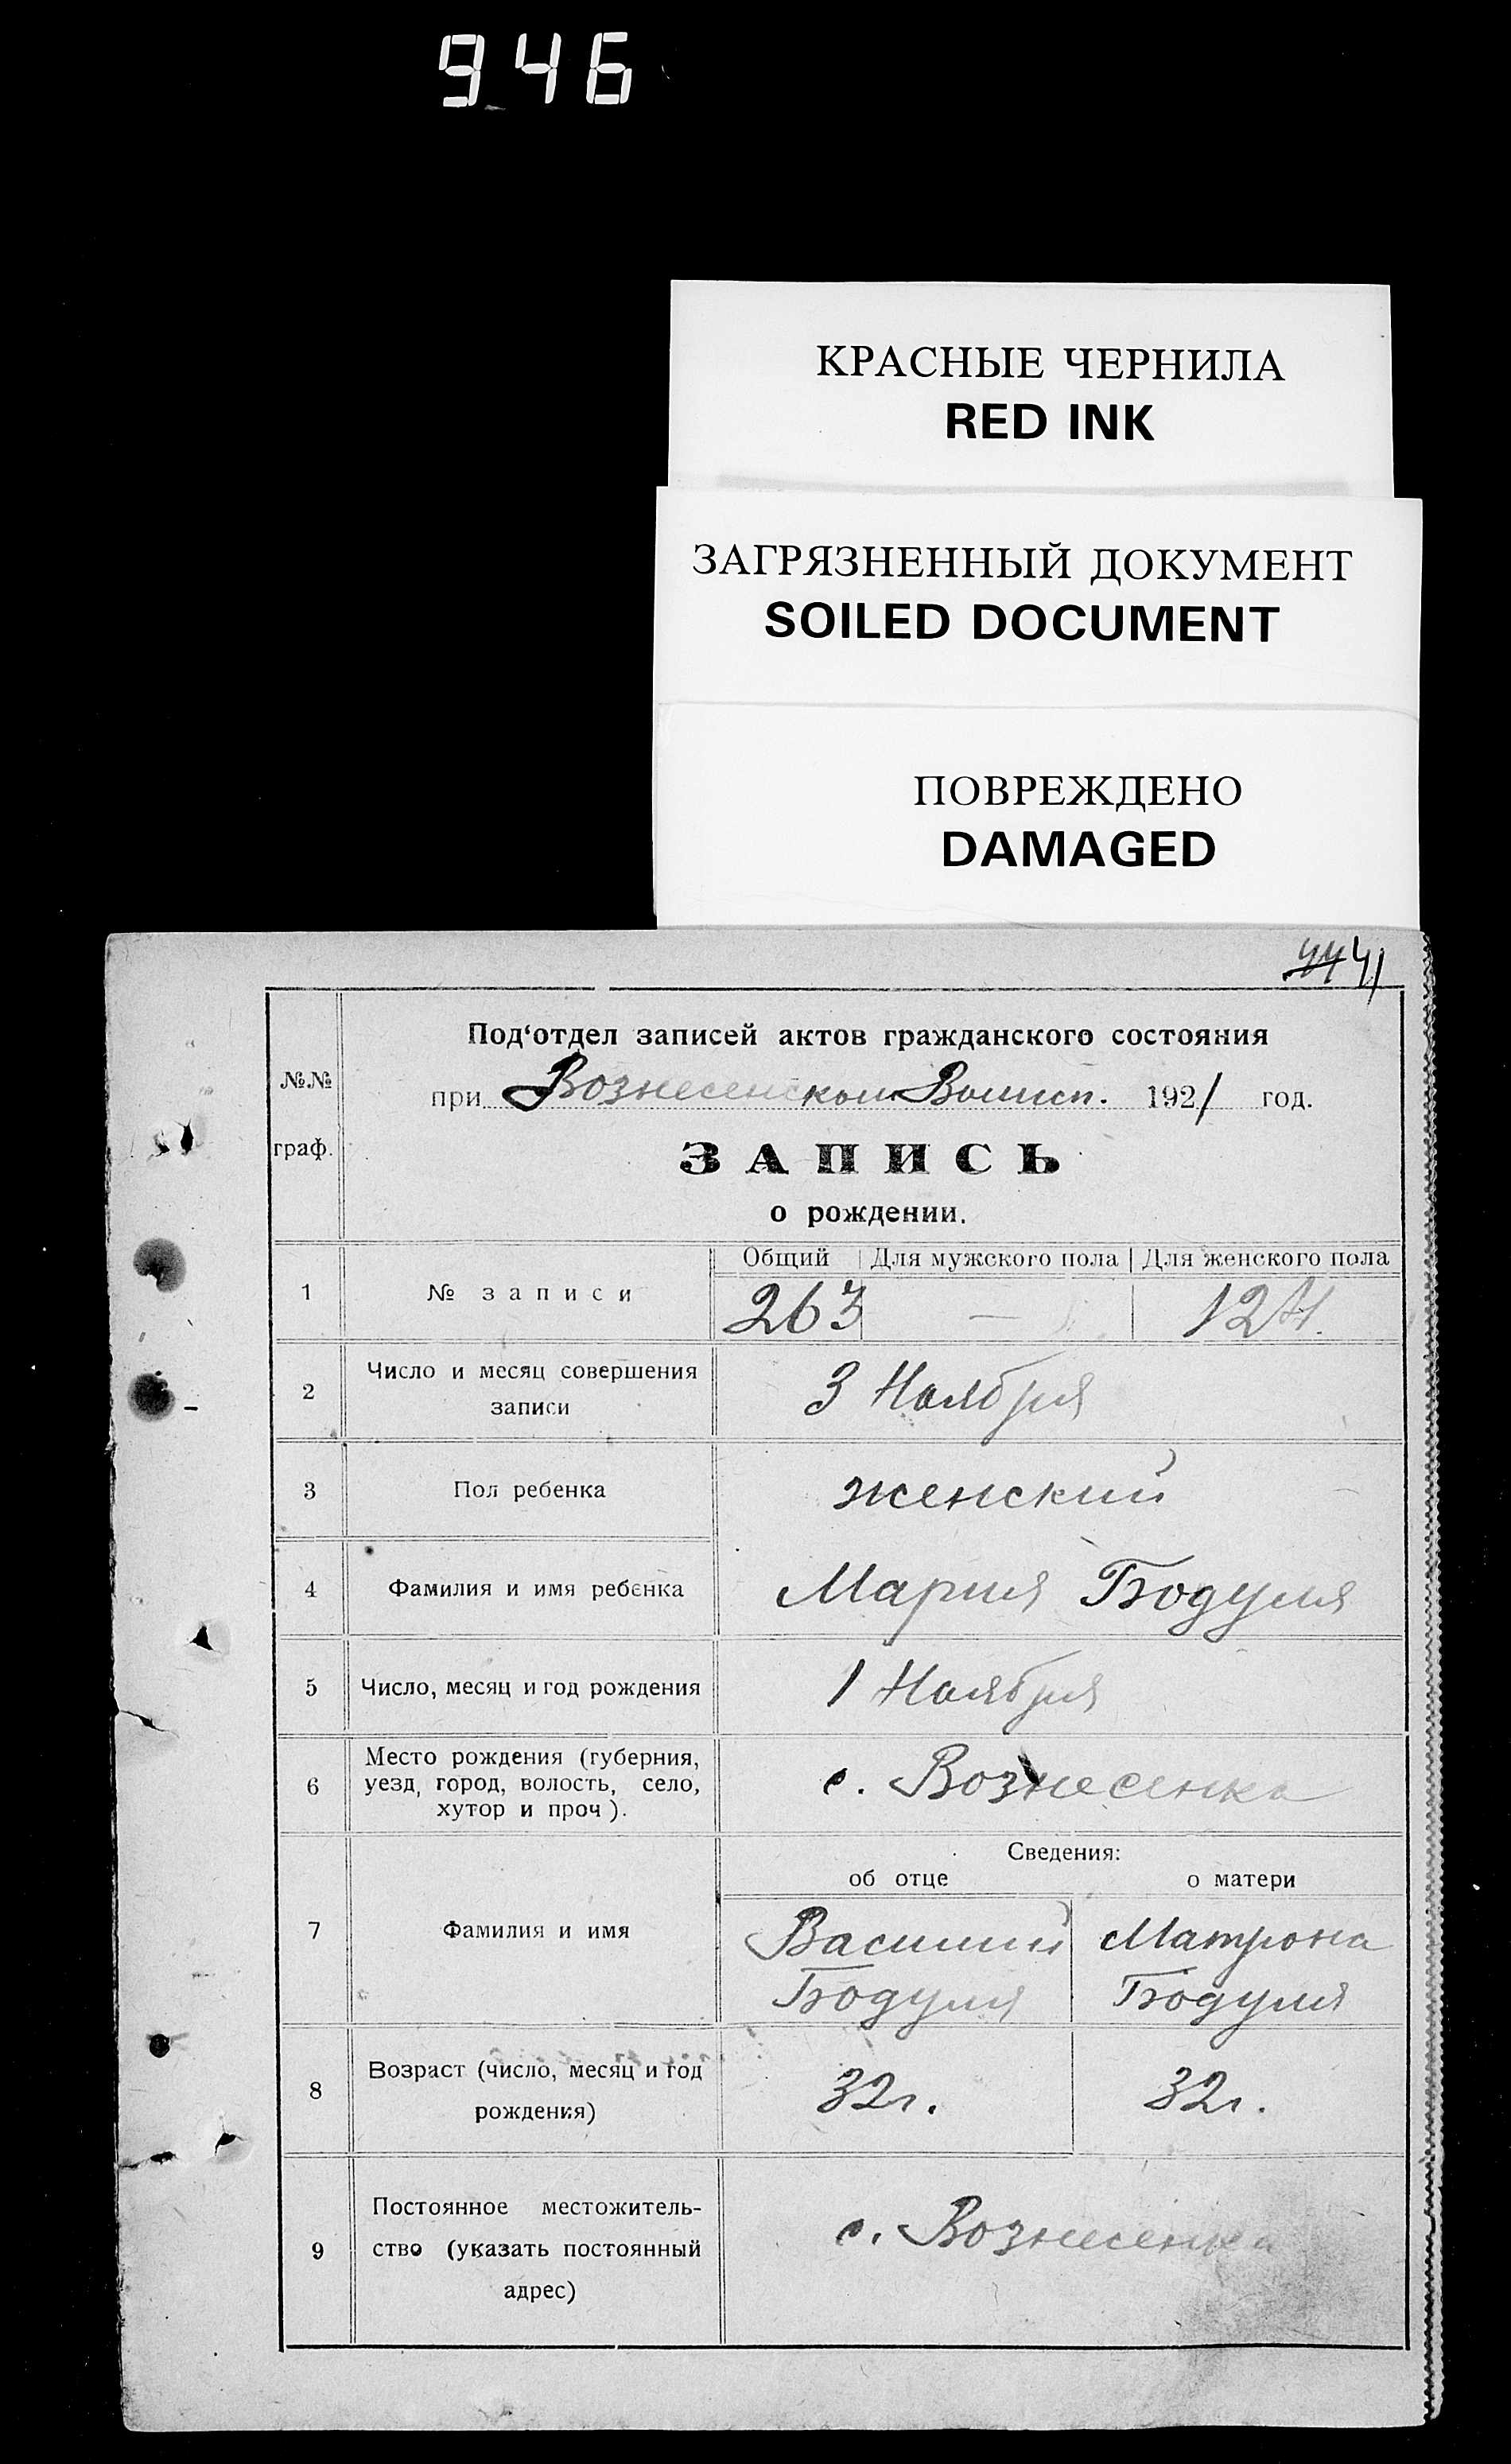 946
КРАСНЫЕ ЧЕРНИЛА
RED INK
ЗАГРЯЗНЕННЫЙ ДОКУМЕНТ
SOILED DOCUMENT
ПОВРЕЖДЕНО
DAMAGED
41
№№ граф.
Под‘отдел записей актов гражданского состояния
при Вознесенском Волисп. 1921 год.
ЗАПИСЬ
о рождении.
Общий Для мужского пола Для женского пола
1 № записи 263 —
2 Число и месяц совершения
записи
3 Ноября
3 Пол ребенка женский
4 Фамилия и имя ребенка Мария Бодуля
5 Число, месяц и год рождения 1 Ноября
6 Место рождения (губерния,
уезд, город, волость, село,
хутор и проч).
с. Вознесенка
Сведения:
об отце о матери
7 Фамилия и имя Василий Матрона
Бодуля Бодуля
8 Возраст (число, месяц и год
рождения)
32г. 32г.
9 Постоянное местожитель-
ство (указать постоянный
адрес)
с. Вознесенка